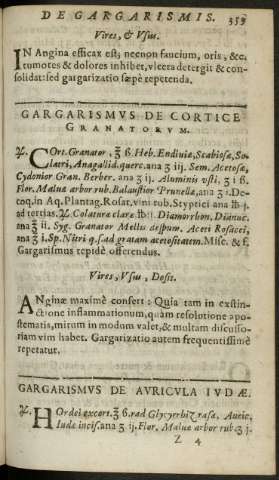 DE GARGARISMIS. 359
Vires, & Vsus.
IN Angina efficax est; necnon faucium, oris, &c.
tumores & dolores inhibet, vlcera detergit & con-
solidat: sed gargarizatio sæpè repetenda.
GARGARISMVS DE CORTICE
GRANATORVM.
℞. COrt. Granator, ℥ 6. Heb. Endiuiæ, Scabiosæ, So-
latri, Anagallid. querc. ana ʒ iij. Sem. Acetosæ,
Cydonior Gran. Berber. ana ʒ ij. Aluminis vsti, ʒ i 6.
Flor. Maluæ arbor. rub. Balaustior Prunellæ, ana ʒ i. De-
coq. in Aq. Plantag. Rosar. vini rub. Styptici ana ℔ j.
ad tertias. ℞. Colaturæ claræ ℔ ij. Diamorrhon. Dianuc.
ana ℥ ii. Syg. Granator Mellis despum. Aceti Rosacei,
ana ℥ i. Sp. Nitri q. s. ad gratam acetositatem. Misc. & f.
Gargarismus tepidè offerendus.
Vires, Vsus, Dosis.
ANginæ maximè confert: Quia tam in extin-
ctione inflammationum, quàm resolutione apo-
stematis, mirum in modum valet, & multam discusso-
riam vim habet. Gargarizatio autem frequentissimè
repetatur.
GARGARISMVS DE AVRICVLA IVDÆ.
℞. HOrdei excort. ℥ 6. rad Glycyrhiz rasæ. Auric.
Iudæ incis. ana ʒ ij. Flor. Maluæ arbor rub ʒ j.
Z 4